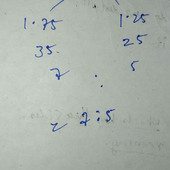 1.75 1.25
35 25
7 : 5
= 7:5